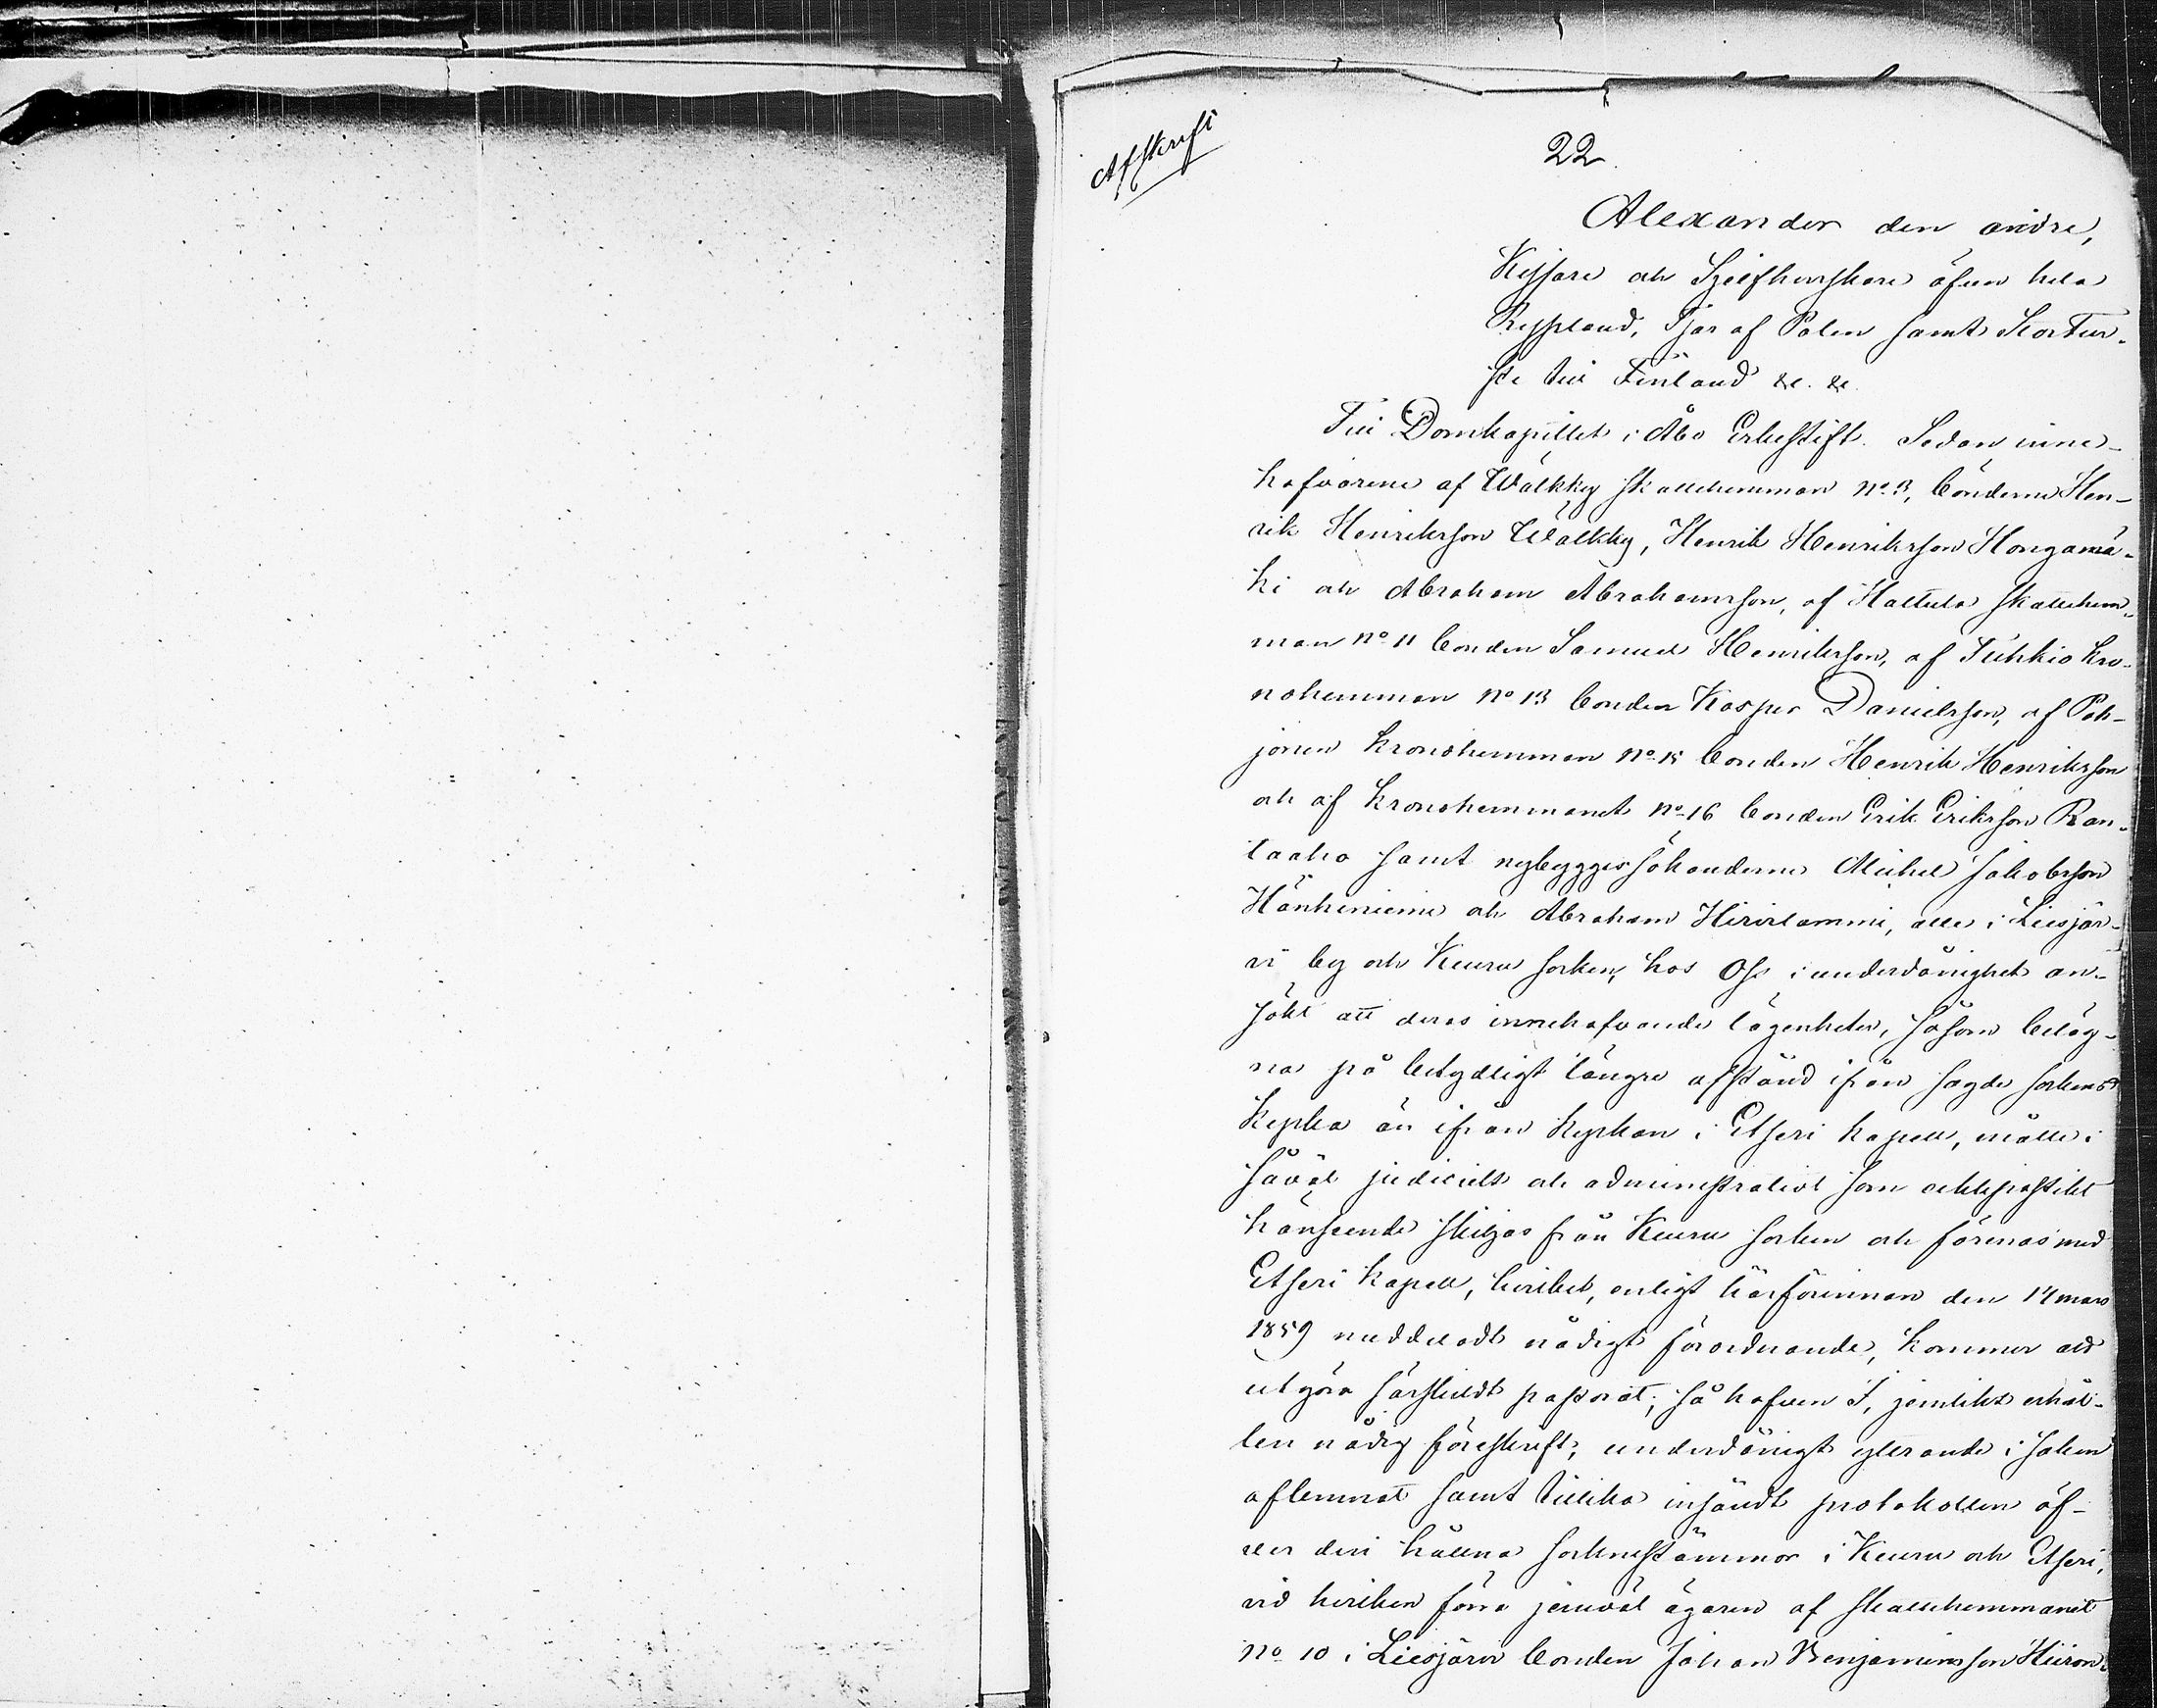 Afskrift
22.
Alexander den andre,
Kejsare och Sjelfherrskare öfver hela
Ryssland, Tjar af Polen samt Storfur-
ste till Finland &c. &c.
Till Domkapitlet i Åbo Erkestift. Sedan inne-
hafvarene af Wälkky skattehemman No 3, bönderne Hen-
rik Henriksson Wälkky, Henrik Henriksson Hongamä-
ki och Abraham Abrahamsson, af Hattula skattehem-
man No 11 bonden Samuel Henriksson, af Tuhkio kro-
nohemman No 13 bonden Kasper Danielsson, af Poh-
jonen kronohemman No 15 bonden Henrik Henriksson
och af kronohemmanet No 16 bonden Erik Eriksson Ran-
taaho samt nybyggessökanderne Mickel Jakobsson
Hänhiniemi och Abraham Hirvilammi, alle i Liesjär-
vi by och Keuru socken, hos Oss i underdånighet an-
sökt att deras innehafvande lägenheter, såsom beläg-
na på betydligt längre afstånd ifrån sagde sockens
kyrka än ifrån kyrkan i Etseri kapell, måtte i
såväl judicielt och administrativt som ecklesiastikt
hänseende skiljas från Keuru socken och förenas med
Etseri kapell, hvilket, enligt härförinnan den 14 mars
1859 meddeladt nådigt förordnande, kommer att
utgöra särskildt pastorat; så hafven I, jemlikt erhål-
len nådig föreskrift, underdånigt yttrande i saken
aflemnat samt tillika insändt protokollen öf-
ver deri hållna sockenstämmor i Keuru och Etseri,
vid hvilken förra jemväl ägaren af skattehemmanet
No 10 i Liesjärvi bonden Johan Benjaminsson Hiiron-